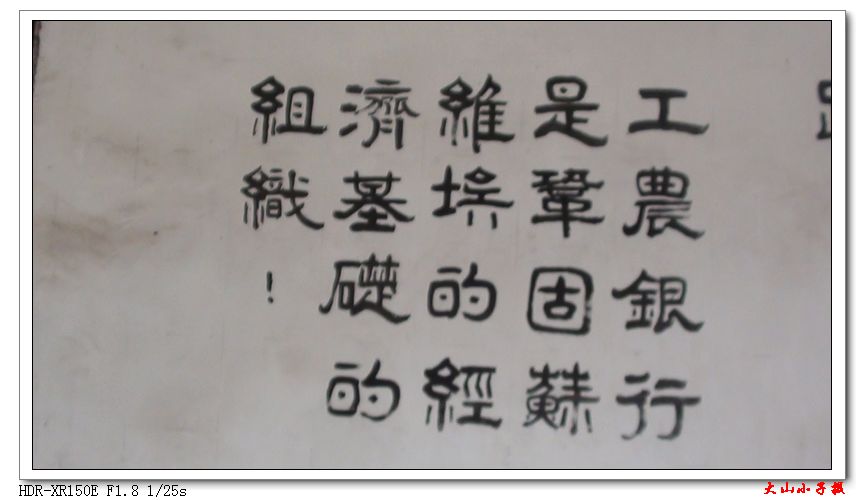 工農銀行
是鞏固蘇
維埃的經
濟基礎的
組織！
HDR-XR150E F1.8 1/25s
大山小子摄